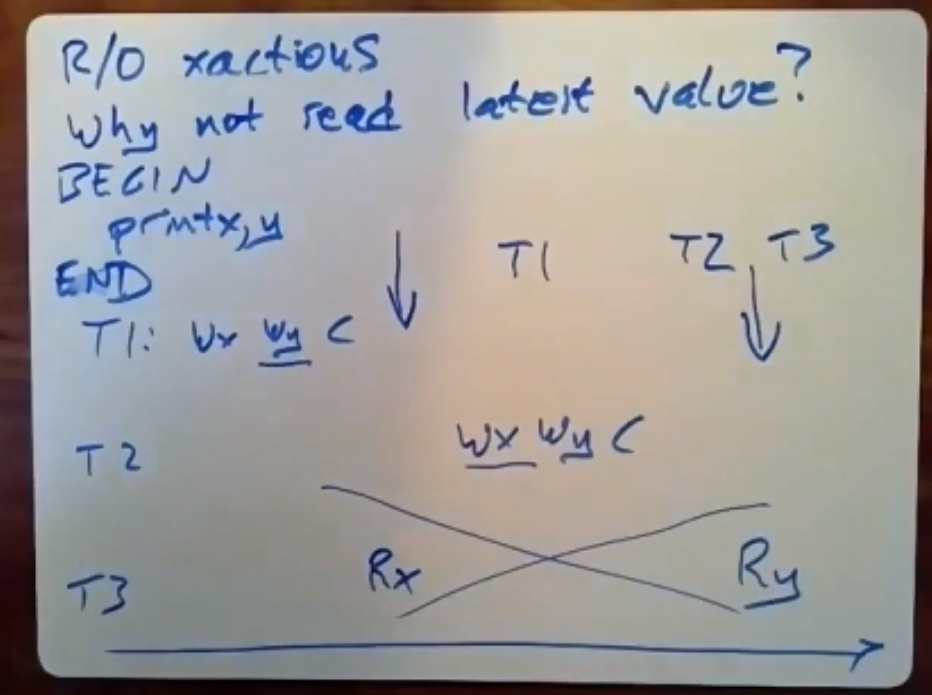 R/O xactions
Why not read latest value?
BEGIN
printx,y
END
T1 T2, T3
T1: Wx Wy C
T2 Wx Wy C
T3 Rx Ry